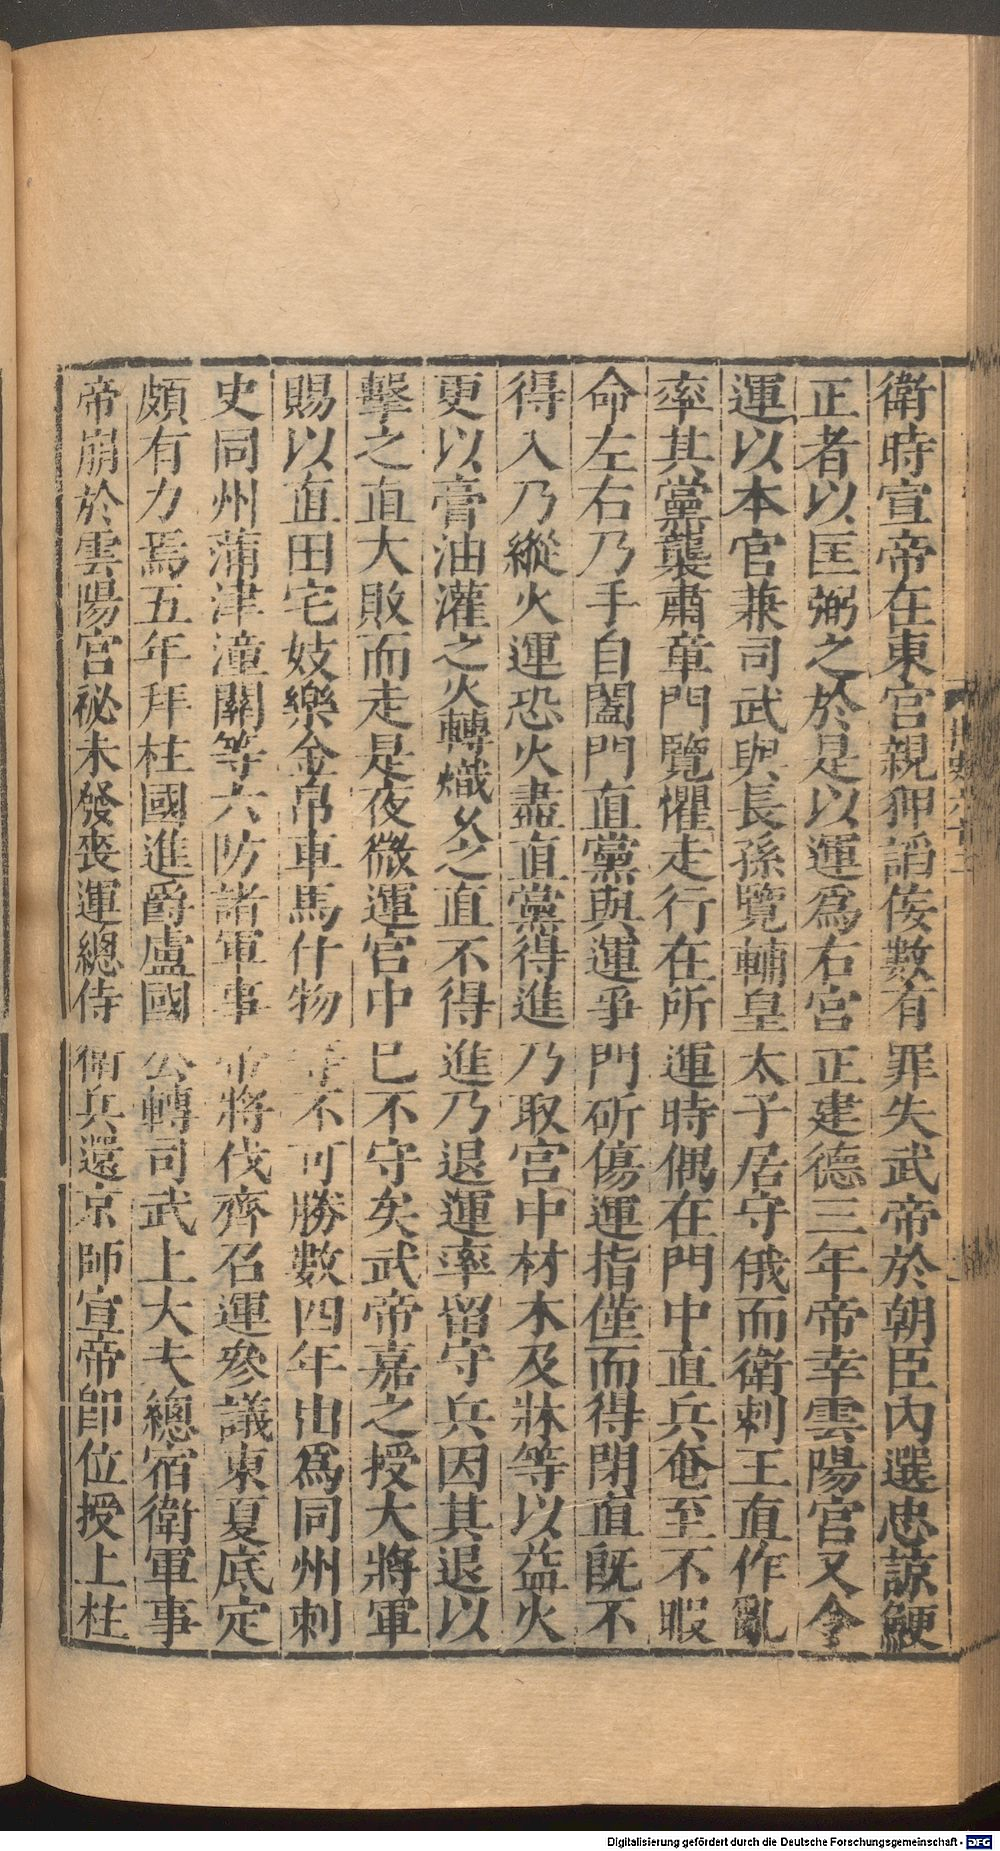 衛時宣帝在東宮親狎諂佞數有罪失武帝於朝臣內選忠諒鯁
正者以匡弼之於是以運爲右宮正建德三年帝幸雲陽宮又令
運以本官兼司武與長孫覽輔皇太子居守俄而衛剌王直作亂
率其黨襲肅章門覽懼走行在所運時偶在門中直兵奄至不暇
命左右乃手自闔門直黨與運爭門斫傷運指僅而得閉直旣不
得入乃縱火運恐火盡直黨得進乃取宮中材木及牀等以益火
更以膏油灌之火轉熾乆之直不得進乃退運率留守兵因其退以
擊之直大敗而走是夜微運宮中已不守矣武帝嘉之授大將軍
賜以直田宅妓樂金帛車馬什物等不可勝數四年出爲同州刺
史同州蒲津潼關等六防諸軍事帝將伐齊召運參議東夏底定
頗有力焉五年拜柱國進爵盧國公轉司武上大夫總宿衛軍事
帝崩於雲陽宮祕未發喪運總侍衛兵還京師宣帝卽位授上柱
Digitalisierung gefördert durch die Deutsche Forschungsgemeinschaft - DFG